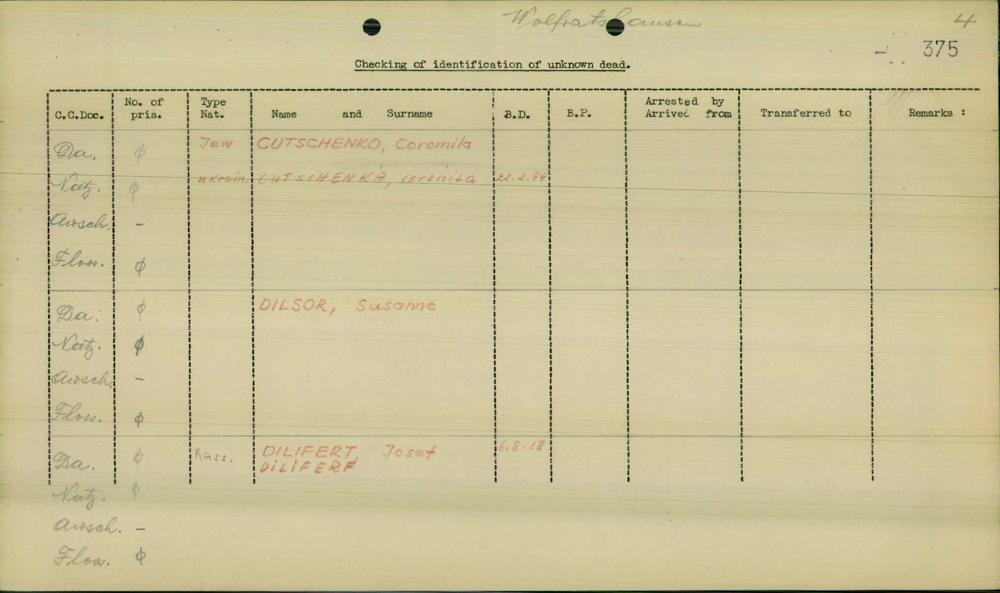 Wolfratshausen 4
- 375
Checking of identification of unknown dead.
C.C.Doc. No. of pris. Type Nat. Name and Surname B.D. B.P. Arrested by Arrived from Transferred to Remarks :
Da. φ Jew CUTSCHENKO, Coromila
Natz. φ ukrain. CUTSCHENKA, Coronila 22.2.99
Ausch. -
Floss. φ
Da. φ DILSOR, Susanne
Natz. φ
Ausch. -
Floss. φ
Da. φ Russ. DILIFERT, Josef 6.8.18
DILIFERF
Natz. φ
Ausch. -
Floss. φ